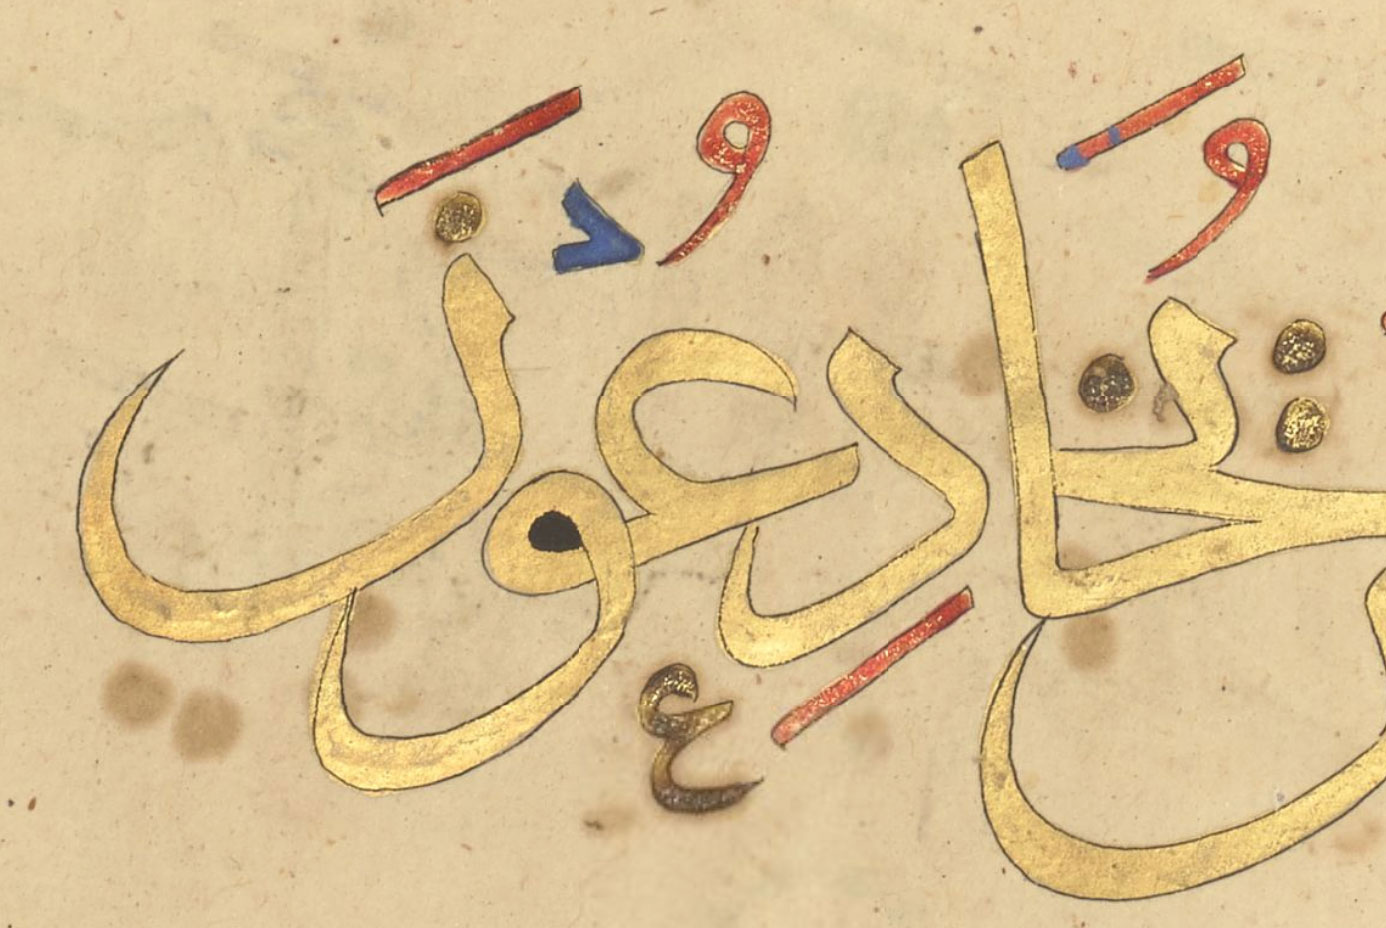 يُخَادِعُونَ